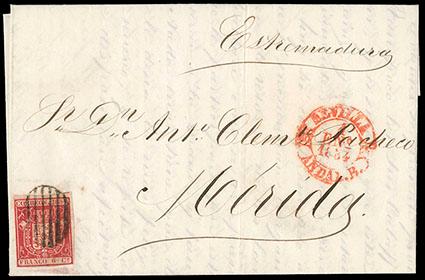 Estremadura
Sr. Dn. Anto. Clemte. Pacheco
SEVILLA
1854
ANDAL. B.
Mérida.
FRANCO 6 Cs.